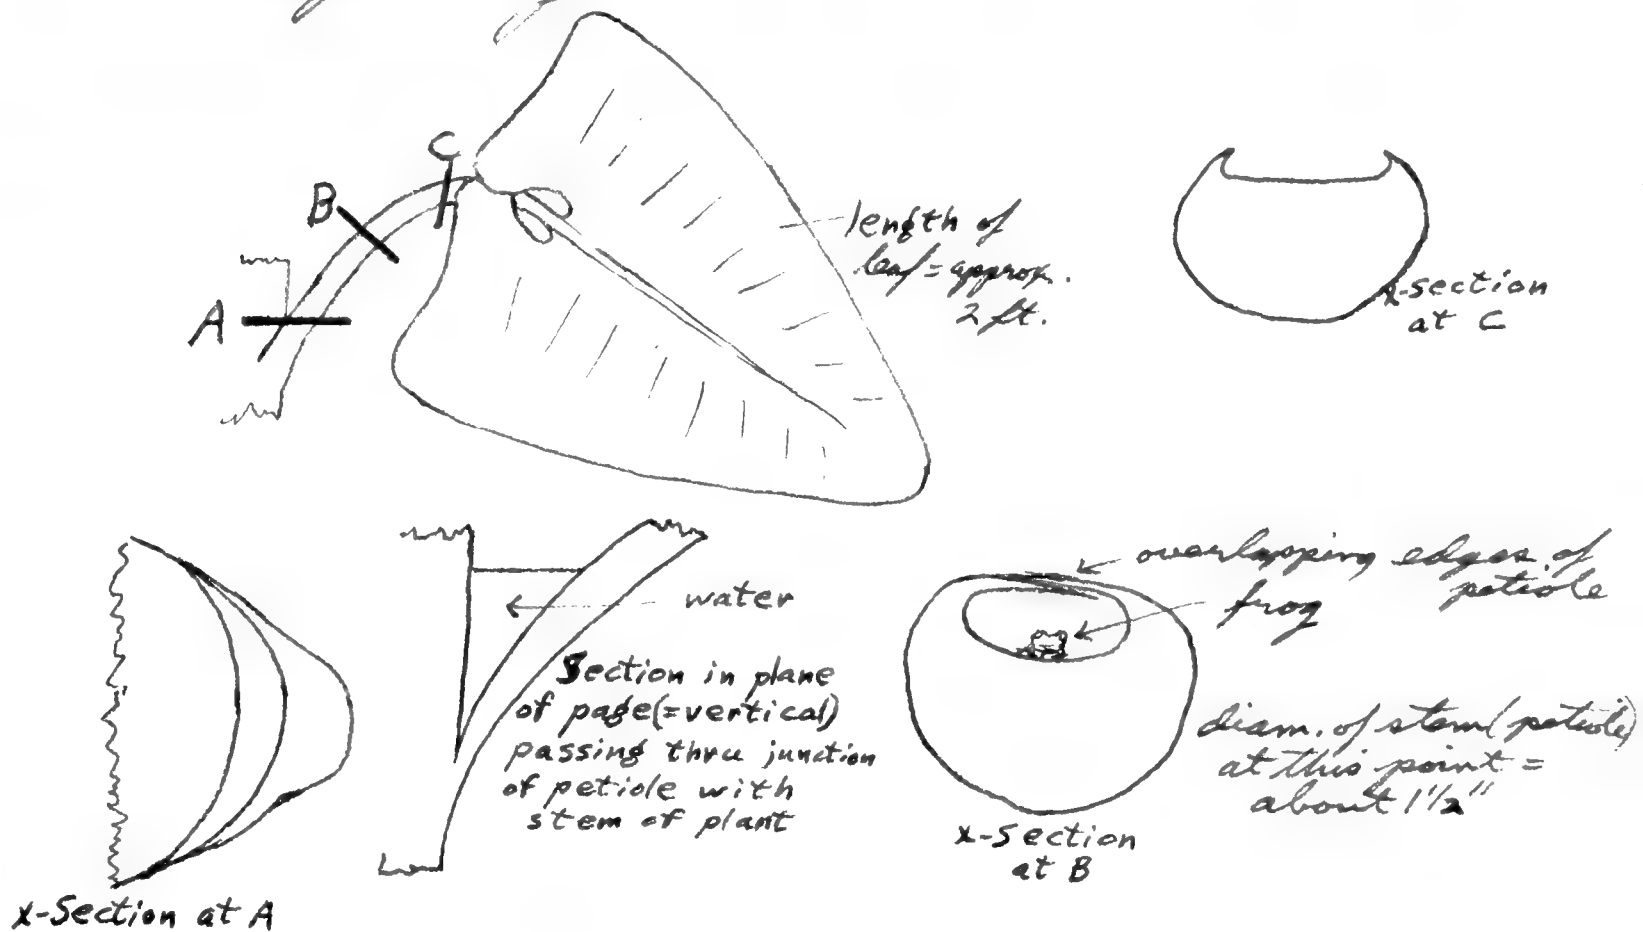 C
B
A
length of
leaf = approx.
2 ft.
x-section
at C
water
Section in plane
of page (= vertical)
passing thru junction
of petiole with
stem of plant
overlapping edges of
petiole
frog
diam. of stem (petiole)
at this point =
about 1 1/2"
x-Section
at B
x-Section at A